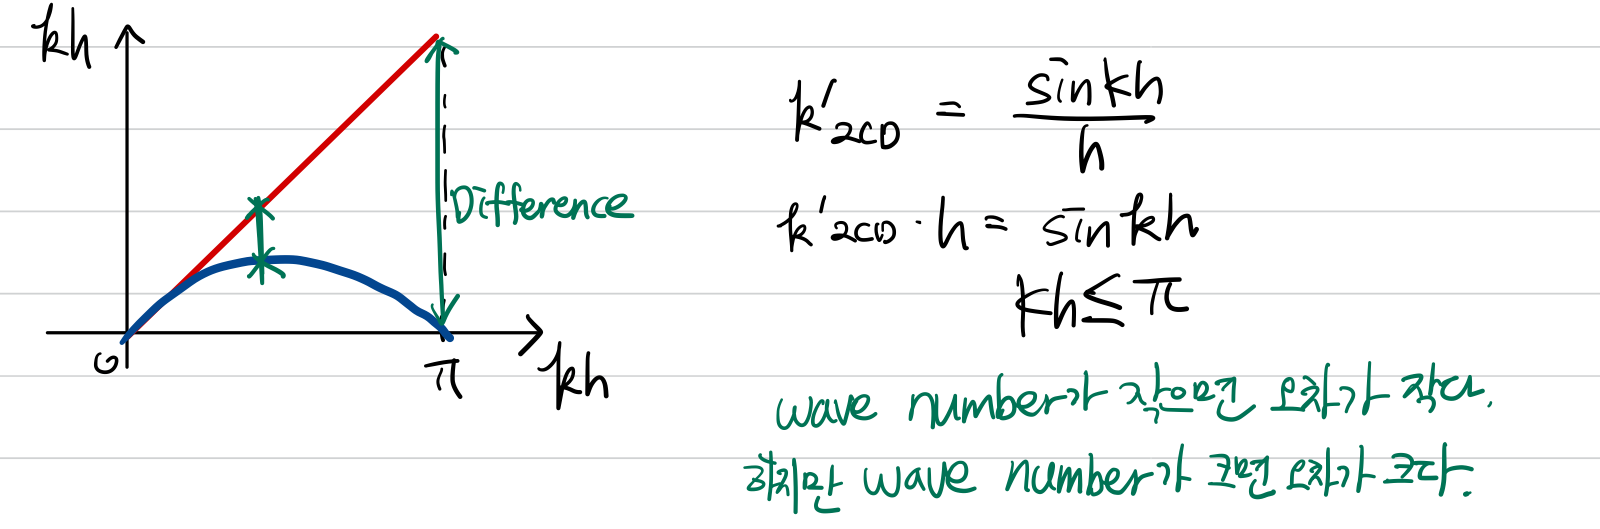 kh
Difference
0
π
kh
k'2CD = sinkh / h
k'2CD · h = sinkh
kh ≤ π
wave number가 작으면 오차가 작다.
하지만 wave number가 크면 오차가 크다.